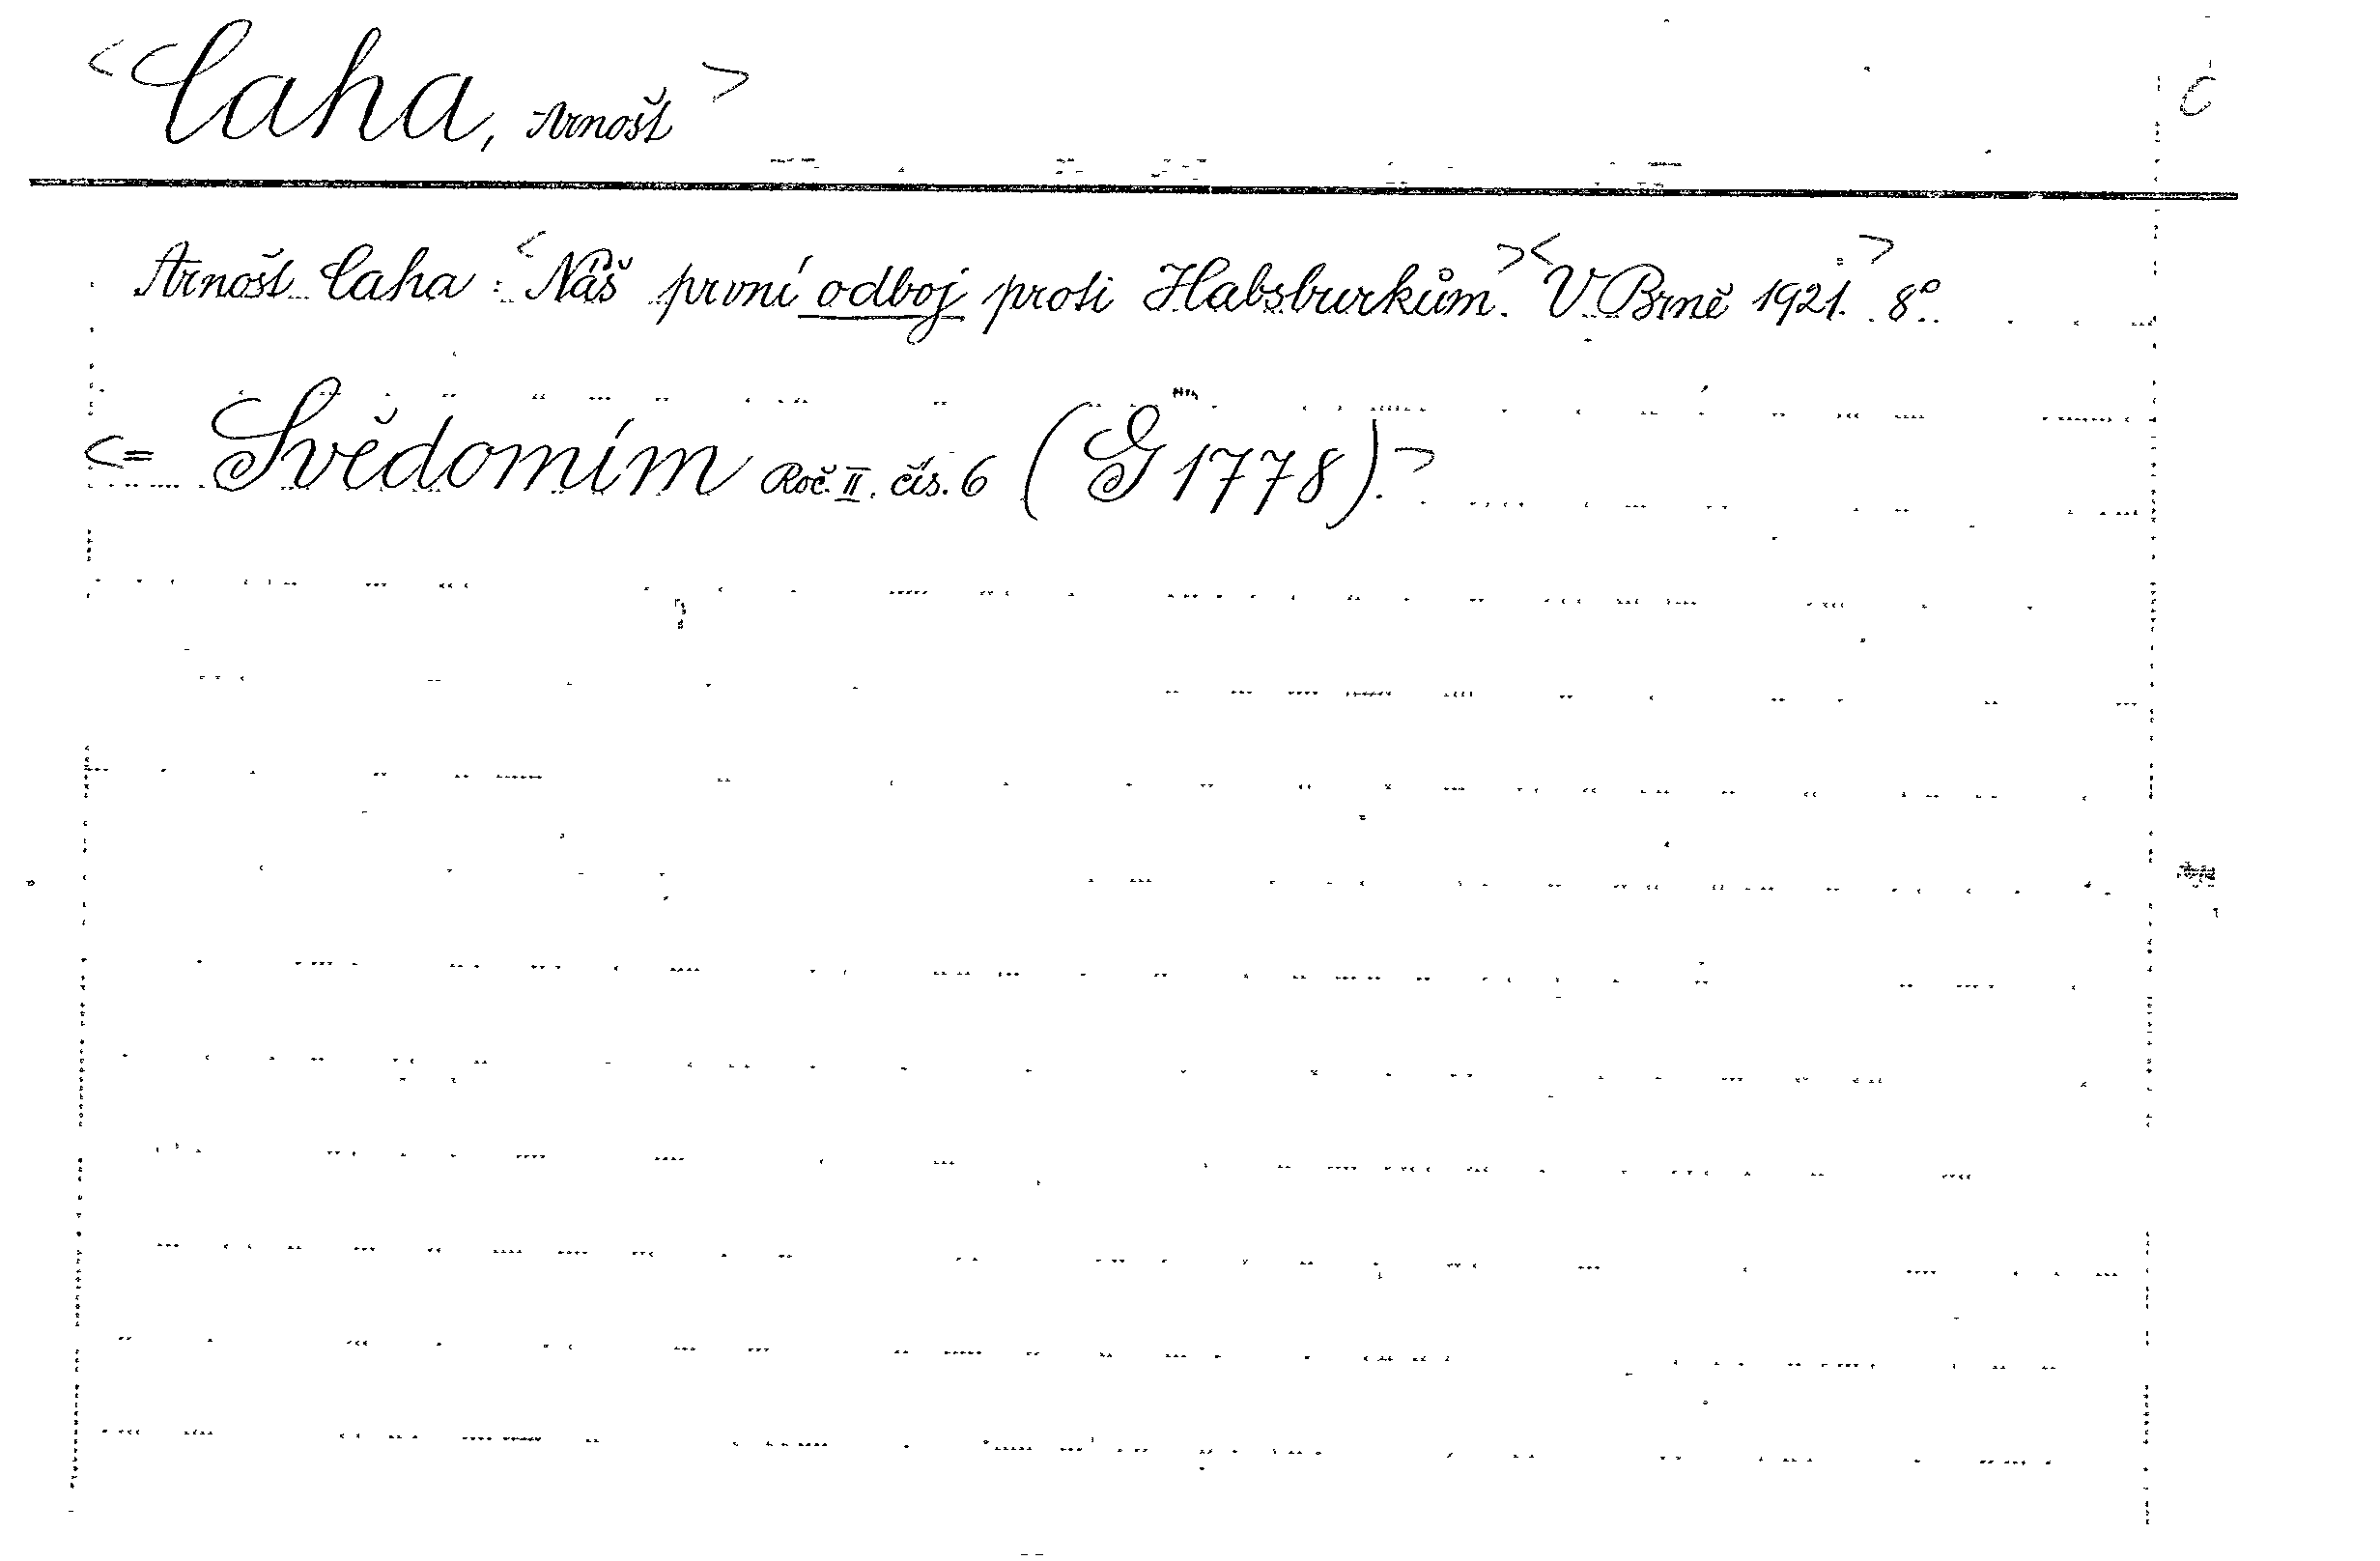 <Caha, Arnošt> C
Arnošt Caha: <Náš první odboj proti Habsburkům.> <V Brně 1921.> 8°.
<= Svědomím Roč. II. čís. 6 (G 1778).>